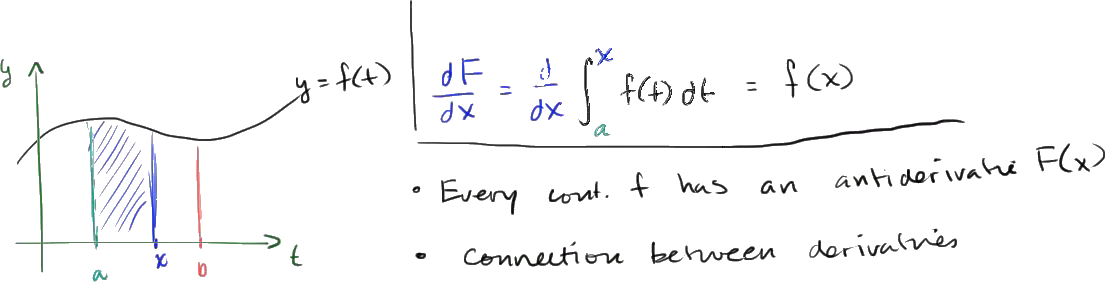 y
y = f(t)
a x b t
dF/dx = d/dx ∫_a^x f(t) dt = f(x)
• Every cont. f has an antiderivative F(x)
• Connection between derivatives